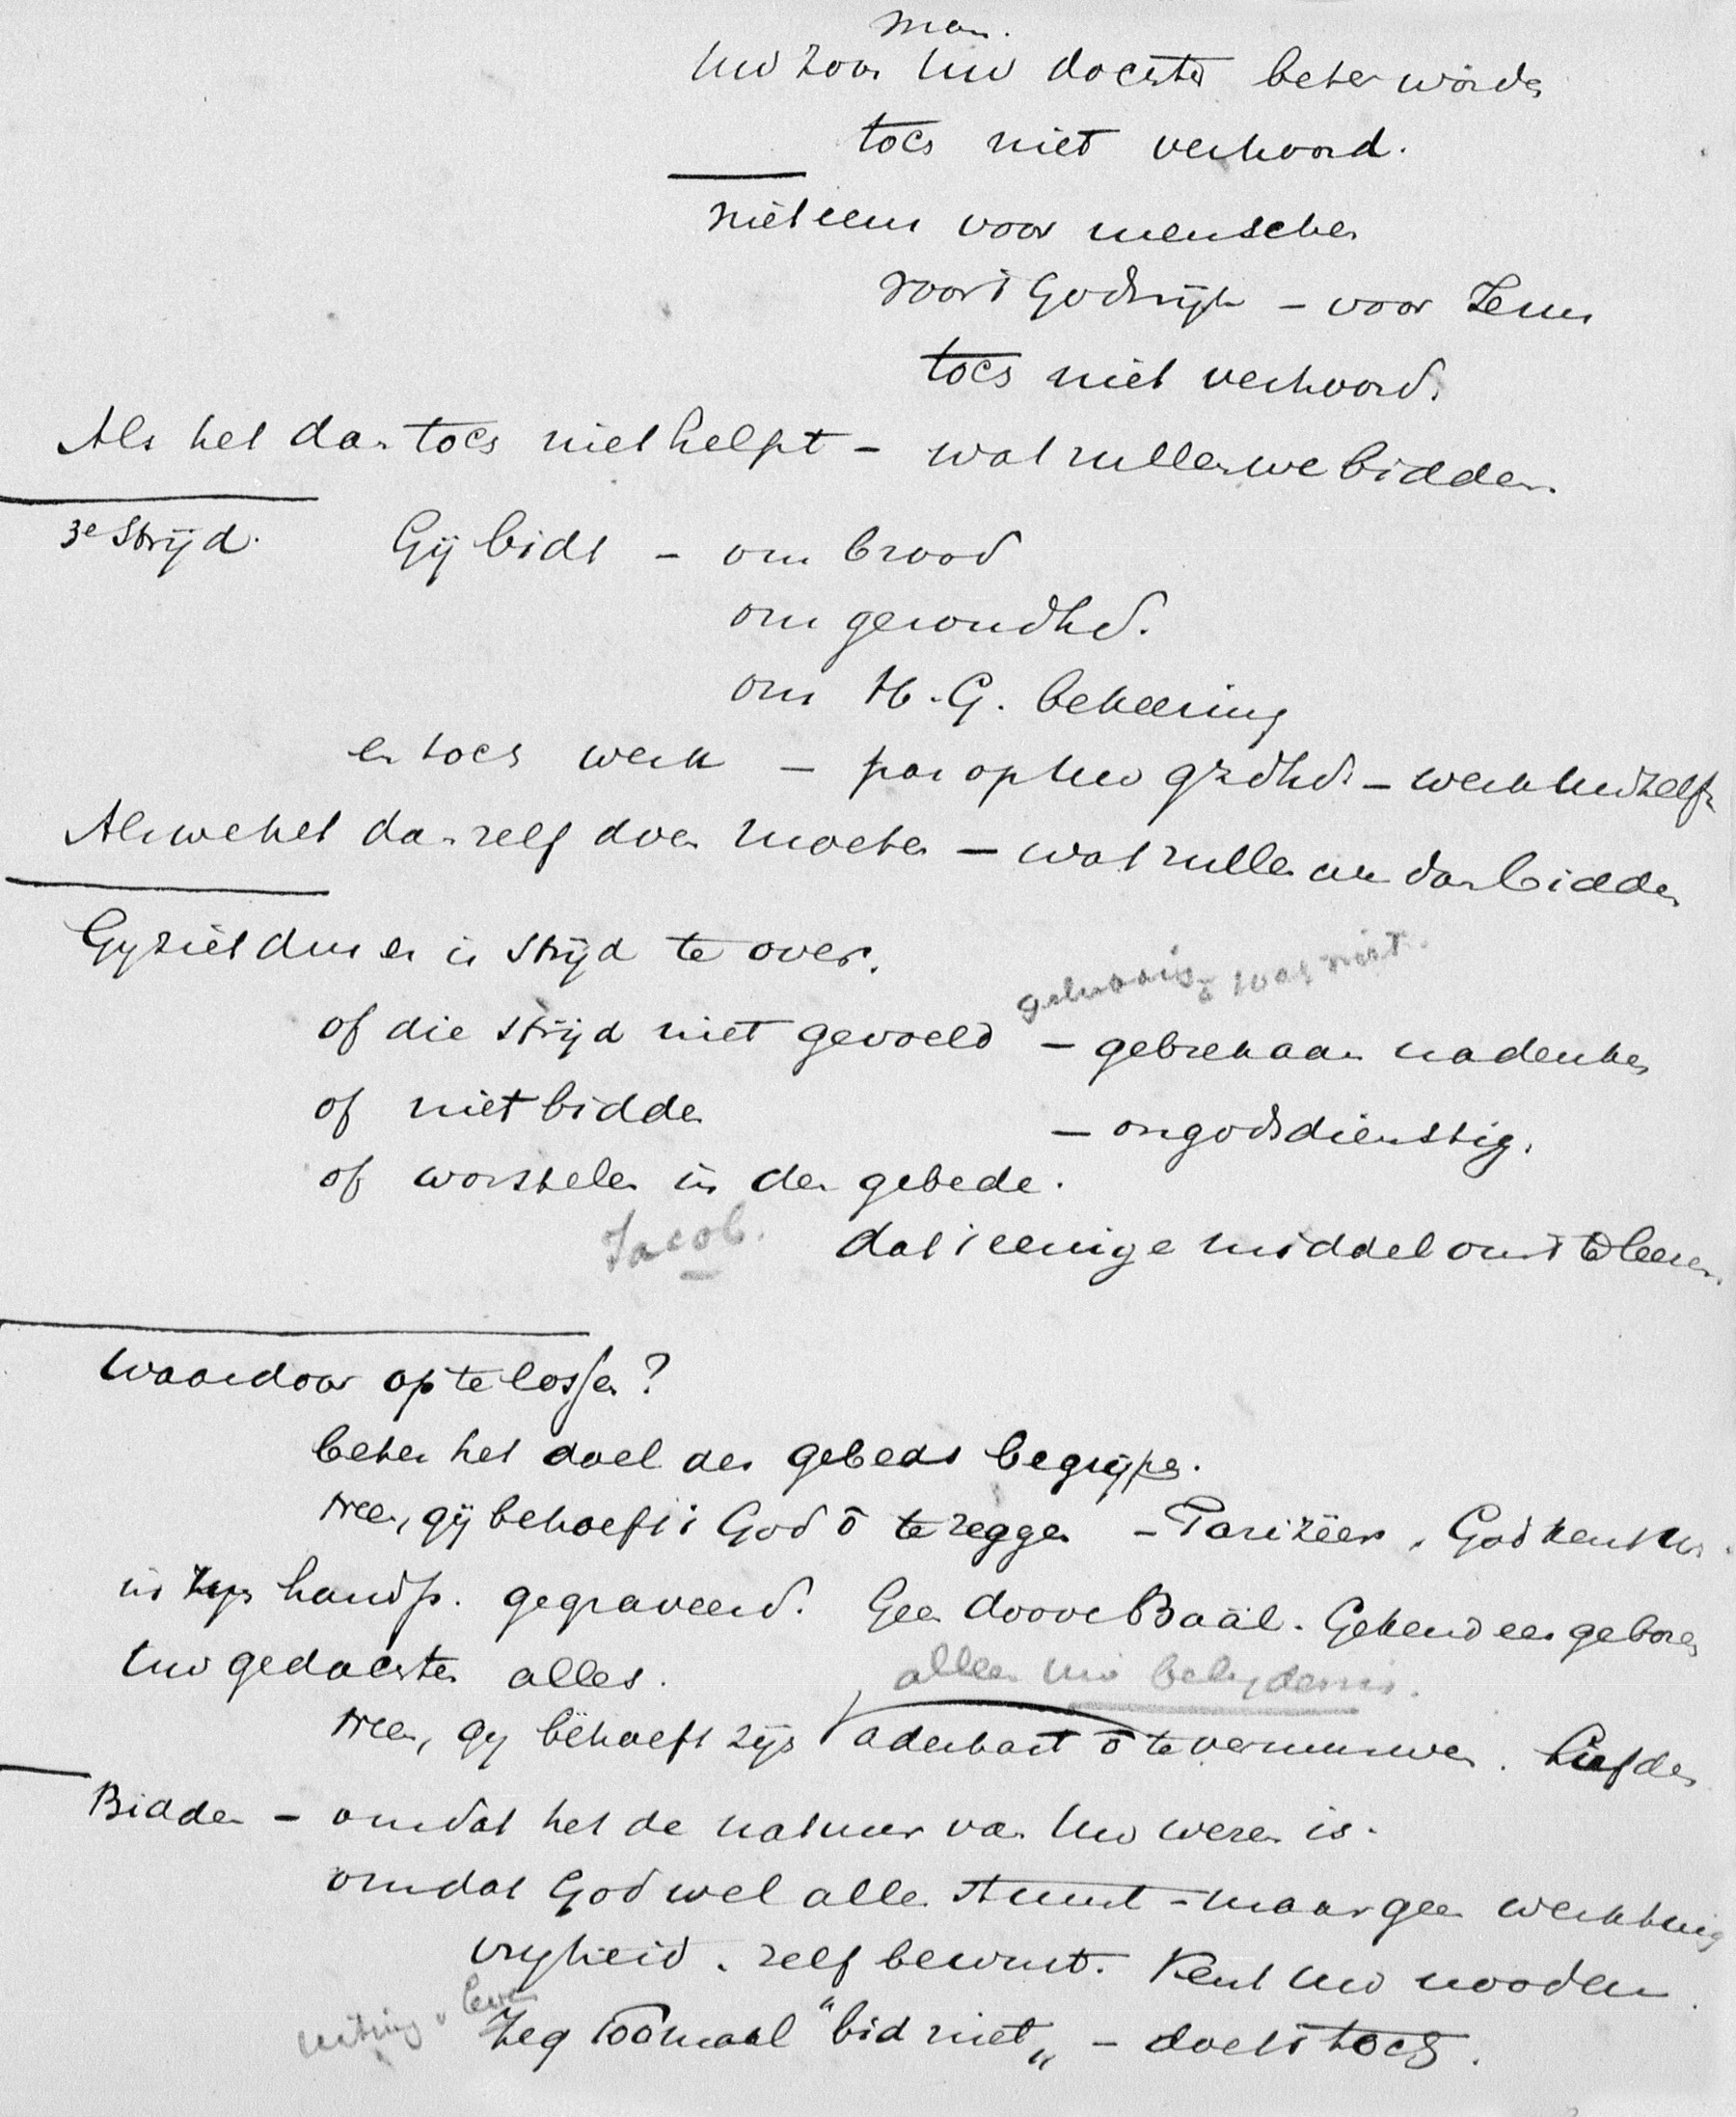 man.
Uw zoon Uw dochter beter worden
toch niet verhoord.
niet eens voor menschen
voor 't Godsrijk – voor Jezus
toch niet verhoord.
Als het dan toch niet helpt – wat zullen we bidden.
3e Strijd. Gij bidt – om brood
om gezondhd.
om H. G. bekeering
en toch werk – pas op Uw gzdhd. – werk Uw zelf
Als we het dan zelf doen moeten – wat zullen we dan bidden
Gy ziet dus er is strijd te over.
wat niet.
of die strijd niet gevoeld – gebrek aan nadenken
of niet bidden – ongodsdienstig.
of worstelen in den gebede.
Jacob. dat 's eenige middel om 't te leeren.
Waardoor op te lossen?
beter het doel des gebeds begrijpen.
Neen, gij behoeft 't God ō te zeggen – Farizëer. God kent Uw.
in Zijn handp. gegraveerd. Geen doove Baäl. Gekend eer geboren
Uw gedachten alles. alleen Uw belydenis.
Neen, gy behoeft zijn aderhart ō te vermurwen. Liefde
Bidden – omdat het de natuur van Uw wezen is.
omdat God wel alles stuurt – maar geen werktuig
vryheid. zelf bewust. Kent Uw nooden.
uiting v leven
Zeg 100 maal "bid niet„ – doet 't toch.